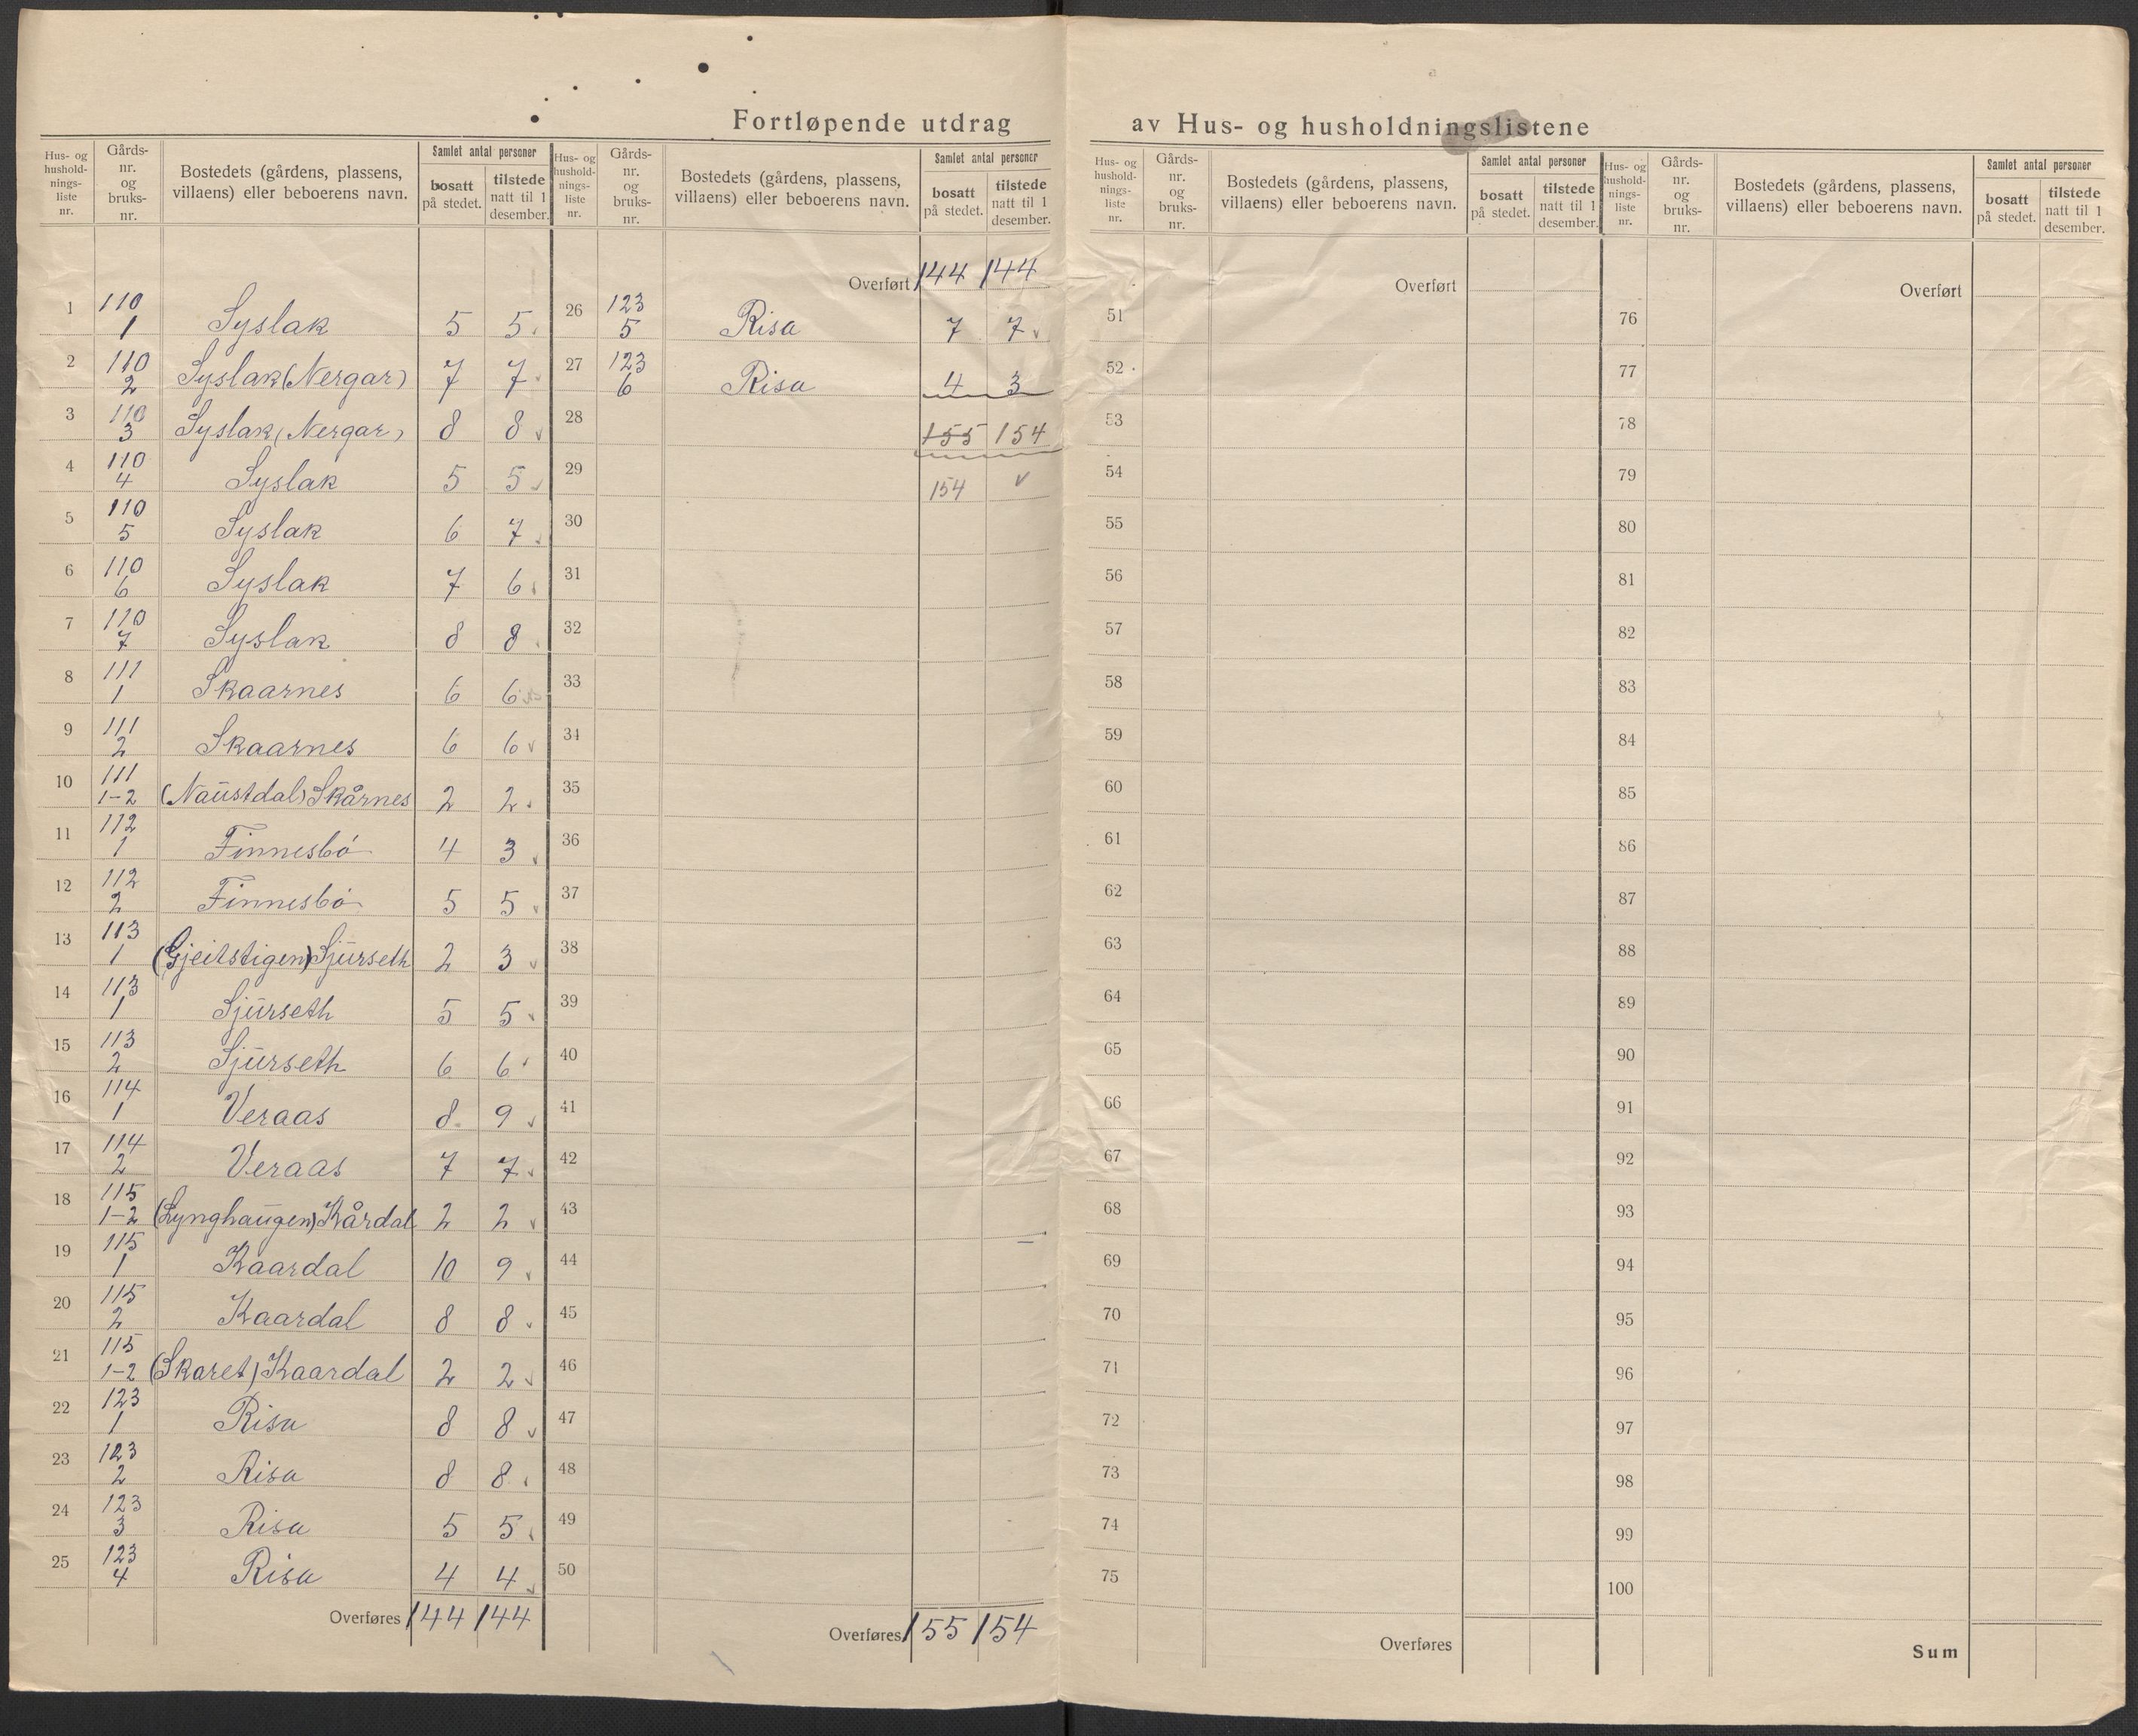 Fortløpende utdrag av Hus- og husholdningslistene
Hus- og hushold-nings-liste nr. Gårds-nr. og bruks-nr. Bostedets (gårdens, plassens, villaens) eller beboerens navn. Samlet antal personer bosatt på stedet. tilstede natt til 1 desember.
1 110 1 Syslak 5 5
2 110 2 Syslak (Nergar) 7 7
3 110 3 Syslak (Nergar) 8 8
4 110 4 Syslak 5 5
5 110 5 Syslak 6 7
6 110 6 Syslak 7 6
7 110 7 Syslak 8 8
8 111 1 Skaarnes 6 6
9 111 2 Skaarnes 6 6
10 111 1-2 (Naustdal) Skårnes 2 2
11 112 1 Finnesbó 4 3
12 112 2 Finnesbó 5 5
13 113 1 (Gjeitstigen) Sjurseth 2 3
14 113 1 Sjurseth 5 5
15 113 2 Sjurseth 6 6
16 114 1 Veraas 8 9
17 114 2 Veraas 7 7
18 115 1-2 (Lynghaugen) Kårdal 2 2
19 115 1 Kaardal 10 9
20 115 2 Kaardal 8 8
21 115 1-2 (Skaret) Kaardal 2 2
22 123 1 Risa 8 8
23 123 2 Risa 8 8
24 123 3 Risa 5 5
25 123 4 Risa 4 4
Overføres 144 144
Hus- og hushold-nings-liste nr. Gårds-nr. og bruks-nr. Bostedets (gårdens, plassens, villaens) eller beboerens navn. Samlet antal personer bosatt på stedet. tilstede natt til 1 desember.
Overført 144 144
26 123 5 Risa 7 7
27 123 6 Risa 4 3
28 155 154
29 154
30
31
32
33
34
35
36
37
38
39
40
41
42
43
44
45
46
47
48
49
50
Overføres 155 154
Hus- og hushold-nings-liste nr. Gårds-nr. og bruks-nr. Bostedets (gårdens, plassens, villaens) eller beboerens navn. Samlet antal personer bosatt på stedet. tilstede natt til 1 desember.
Overført
51
52
53
54
55
56
57
58
59
60
61
62
63
64
65
66
67
68
69
70
71
72
73
74
75
Overføres
Hus- og hushold-nings-liste nr. Gårds-nr. og bruks-nr. Bostedets (gårdens, plassens, villaens) eller beboerens navn. Samlet antal personer bosatt på stedet. tilstede natt til 1 desember.
Overført
76
77
78
79
80
81
82
83
84
85
86
87
88
89
90
91
92
93
94
95
96
97
98
99
100
Sum